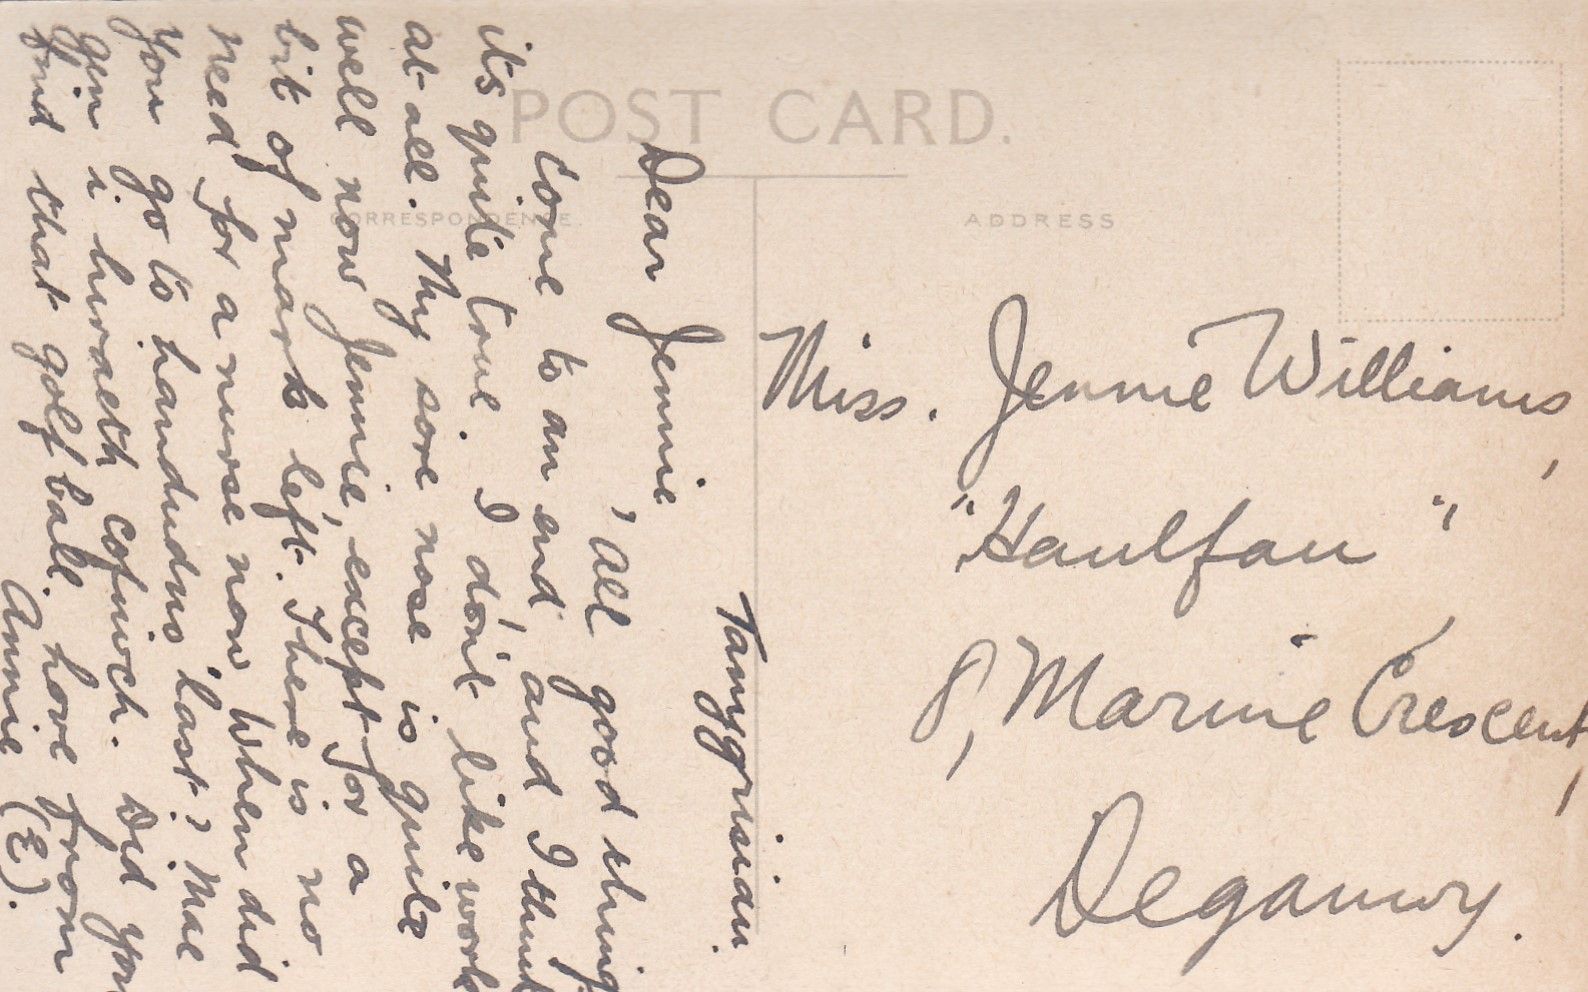 POST CARD.
CORRESPONDENCE.
ADDRESS
Tanygrisiau.
Dear Jennie,
All good things
Come to an end, and I think
its quite true. I don't like work
at all. My sore nose is quite
well now Jennie, except for a
bit of mark left. There is no
need for a nurse now. When did
you go to handudno last? Mae
gen i hiraeth cofiwch. Did you
find that golf ball. hove from
Annie (E).
Miss. Jennie Williams,
"Haulfan"
8, Marine Crescent,
Deganwy.